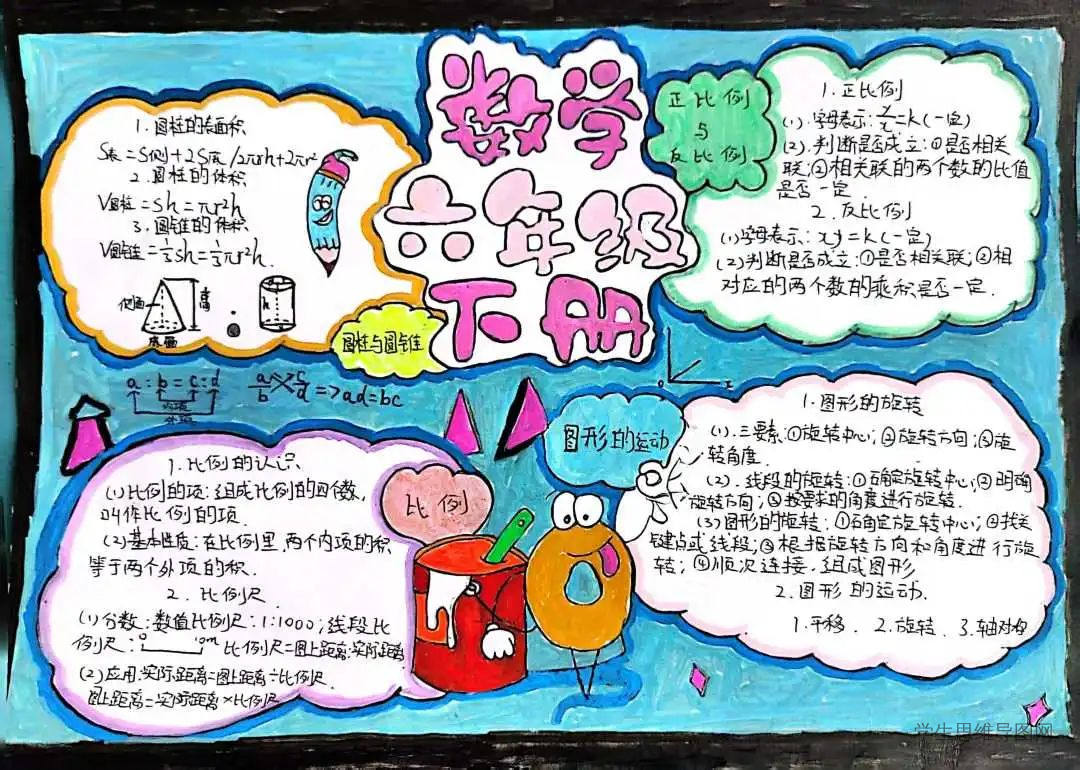 数学
六年级
下册
1. 圆柱的表面积
S表=S侧+2S底/2πrh+2πr²
2. 圆柱的体积
V圆柱=sh=πr²h
3. 圆锥的体积
V圆锥=⅓sh=⅓πr²h.
侧面
高
底面
h
圆柱与圆锥
正比例
与
反比例
1. 正比例
(1).字母表示:
=k(一定)
(2).判断是否成立:①是否相关
联;②相关联的两个数的比值
是否一定.
2. 反比例
(1)字母表示: xy=k(一定)
(2)判断是否成立:①是否相关联;②相
对应的两个数的乘积是否一定.
a:b=c:d
内项
外项
a/b c/d =>ad=bc
比例
1. 比例的认识
(1)比例的项:组成比例的四个数,
叫作比例的项.
(2)基本性质:在比例里,两个内项的积
等于两个外项的积.
2. 比例尺
(1)分数:数值比例尺:1:1000;线段比
例尺: 0 10m 比例尺=图上距离:实际距离
(2)应用:实际距离=图上距离÷比例尺
图上距离=实际距离×比例尺
图形的运动
1. 图形的旋转
(1).三要素:①旋转中心;②旋转方向;③旋
转角度.
(2).线段的旋转:①确定旋转中心;②明确
旋转方向;③按要求的角度进行旋转.
(3)图形的旋转:①确定旋转中心;②找关
键点或线段;③根据旋转方向和角度进行旋
转;④顺次连接.组成图形
2. 图形的运动.
1.平移. 2.旋转. 3.轴对称
学生思维导图网